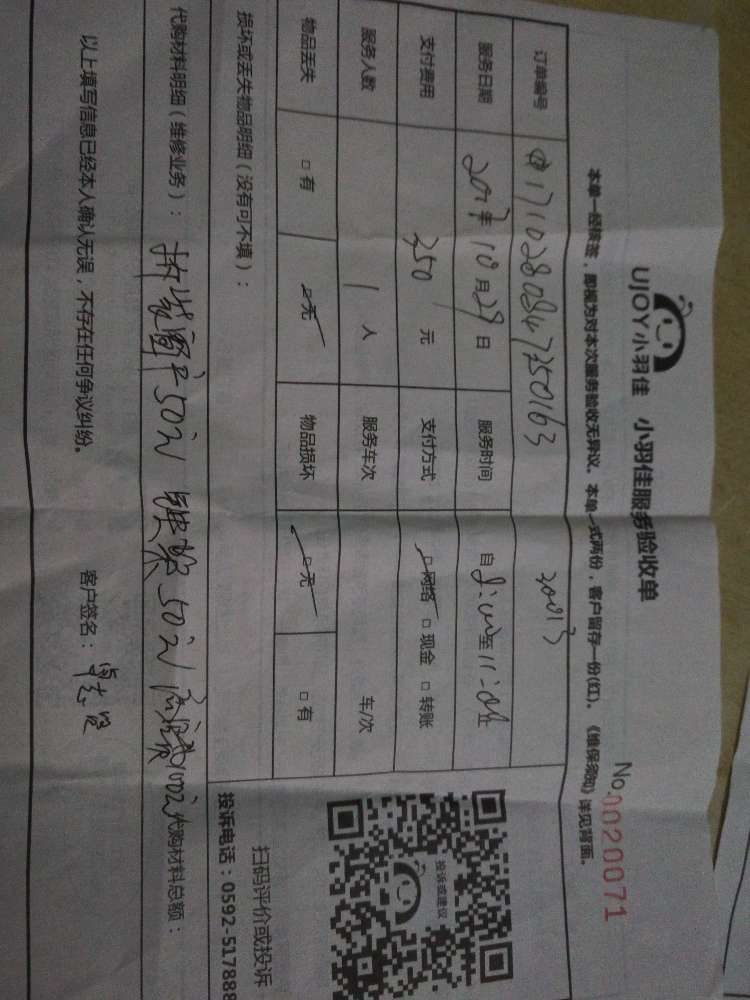 UJOY小羽佳 小羽佳服务验收单
No.0020071
本单一经签, 即视为对本次服务验收无异议。本单一式两份, 客户留存一份(红)。《维保须知》详见背面。
订单编号
服务日期 2017年10月29日 服务时间 自 至
支付费用 350 元 支付方式 □网络 □现金 □转账
服务人数 1 人 服务车次 车/次
物品丢失 □有 □无 物品损坏 □无 □有
损坏或丢失物品明细(没有可不填):
代购材料明细(维修业务): 50元 50元 100元 代购材料总额:
以上填写信息已经本人确认无误, 不存在任何争议纠纷。 客户签名:
投诉或建议
扫码评价或投诉
投诉电话:0592-517888